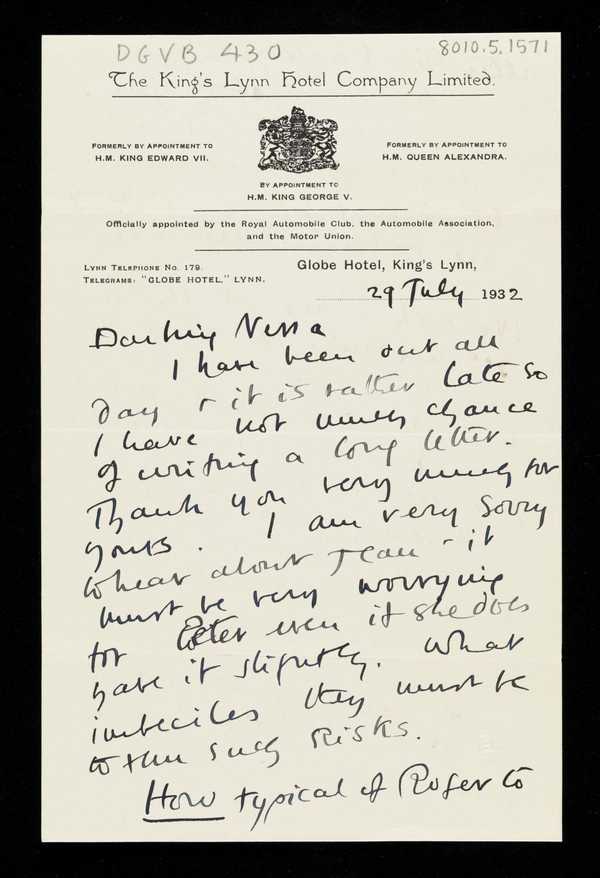 DGVB 430
8010.5.1571
The King's Lynn Hotel Company Limited.
FORMERLY BY APPOINTMENT TO
H.M. KING EDWARD VII.
FORMERLY BY APPOINTMENT TO
H.M. QUEEN ALEXANDRA.
BY APPOINTMENT TO
H.M. KING GEORGE V.
Officially appointed by the Royal Automobile Club, the Automobile Association,
and the Motor Union.
LYNN TELEPHONE No. 179.
TELEGRAMS: "GLOBE HOTEL," LYNN.
Globe Hotel, King's Lynn,
29 July 1932
Darling Nessa
I have been out all
day & it is rather late so
I have not much chance
of writing a long letter.
Thank you very much for
yours. I am very sorry
to hear about Jean & it
must be very worrying
for Peter even if she does
have it slightly. What
imbeciles they must be
to run such risks.
How typical of Roger to